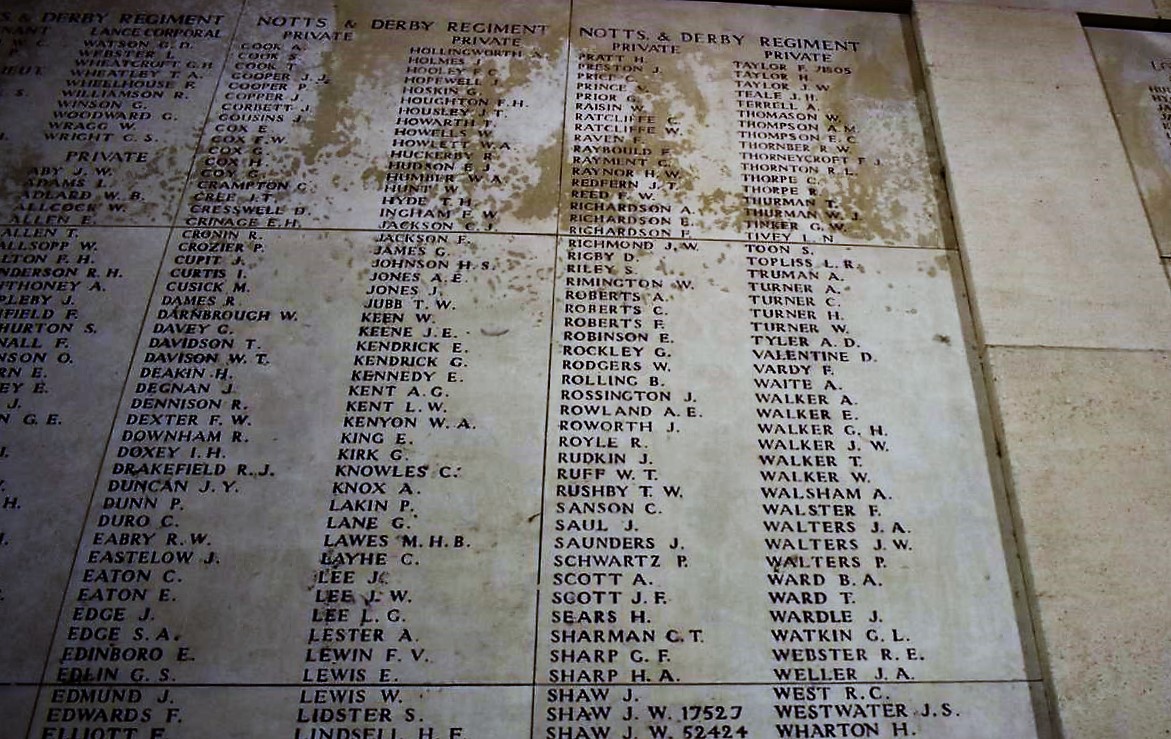 S & DERBY REGIMENT
LANCE CORPORAL
WATSON G. D.
WEBSTER J.
WHEATCROFT G. H
WHEATLEY T. A.
WHEELHOUSE F.
WILLIAMSON R.
WINSON G.
WOODWARD G.
WRAGG W.
WRIGHT C. S.
PRIVATE
ABY J. W.
ADAMS L.
ADLARD W. B.
ALLCOCK W.
ALLEN E.
ALLEN T.
ALLSOPP W.
LTON F. H.
NDERSON R. H.
NTHONEY A.
PLEBY J.
FIELD F.
HURTON S.
NALL F.
NSON O.
RN E.
EY E.
J.
N G. E.
H.
NOTTS & DERBY REGIMENT
PRIVATE
COOK A.
COOK S.
COOK T.
COOPER J. J.
COOPER P.
COPPER J.
CORBETT J.
COUSINS J.
COX E.
COX F. W.
COX G.
COX H.
COY G.
CRAMPTON G.
CREE J. T.
CRESSWELL D.
CRINAGE E. H.
CRONIN R.
CROZIER P.
CUPIT J.
CURTIS I.
CUSICK M.
DAMES R.
DARNBROUGH W.
DAVEY G.
DAVIDSON T.
DAVISON W. T.
DEAKIN H.
DEGNAN J.
DENNISON R.
DEXTER F. W.
DOWNHAM R.
DOXEY I. H.
DRAKEFIELD R. J.
DUNCAN J. Y.
DUNN P.
DURO C.
EABRY R. W.
EASTELOW J.
EATON C.
EATON E.
EDGE J.
EDGE S. A.
EDINBORO E.
EDLIN G. S.
EDMUND J.
EDWARDS F.
ELLIOTT F.
PRIVATE
HOLLINGWORTH A.
HOLMES J
HOOLEY F. C.
HOPEWELL J.
HOSKIN G.
HOUGHTON F. H.
HOUSLEY J. T.
HOWARTH T.
HOWELLS W.
HOWLETT W. A.
HUCKERBY R
HUDSON E. J
HUMBER W. A.
HUNT W.
HYDE T. H.
INGHAM F. W
JACKSON C. J
JACKSON F.
JAMES G.
JOHNSON H. S.
JONES A. E.
JONES J.
JUBB T. W.
KEEN W.
KEENE J. E.
KENDRICK E.
KENDRICK G.
KENNEDY E.
KENT A. G.
KENT L. W.
KENYON W. A.
KING E.
KIRK G.
KNOWLES C.
KNOX A.
LAKIN P.
LANE G.
LAWES M. H. B.
LAYHE C.
LEE J.
LEE J. W.
LEE L. G.
LESTER A.
LEWIN F. V.
LEWIS E.
LEWIS W.
LIDSTER S.
LINDSELL H. E.
NOTTS. & DERBY REGIMENT
PRIVATE
PRATT H.
PRESTON J.
PRICE C.
PRINCE V.
PRIOR G.
RAISIN W.
RATCLIFFE C.
RATCLIFFE W.
RAVEN F.
RAYBOULD F.
RAYMENT G.
RAYNOR H. W.
REDFERN J. T.
REED F. W.
RICHARDSON A.
RICHARDSON E.
RICHARDSON F.
RICHMOND J. W.
RIGBY D.
RILEY S.
RIMINGTON W.
ROBERTS A.
ROBERTS C.
ROBERTS F.
ROBINSON E.
ROCKLEY G.
RODGERS W.
ROLLING B.
ROSSINGTON J.
ROWLAND A. E.
ROWORTH J.
ROYLE R.
RUDKIN J.
RUFF W. T.
RUSHBY T. W.
SANSON C.
SAUL J.
SAUNDERS J.
SCHWARTZ P.
SCOTT A.
SCOTT J. F.
SEARS H.
SHARMAN C. T.
SHARP G. F.
SHARP H. A.
SHAW J.
SHAW J. W. 17527
SHAW J. W. 52424
PRIVATE
TAYLOR F. 71505
TAYLOR H.
TAYLOR J. W
TEALE J. H.
TERRELL A.
THOMASON W.
THOMPSON A. M
THOMPSON E. C.
THORNBER R. W.
THORNEYCROFT F J.
THORNTON R. L.
THORPE C.
THORPE R.
THURMAN T.
THURMAN W. J.
TINKER G. W.
TIVEY L. N
TOON S.
TOPLISS L. R.
TRUMAN A.
TURNER A.
TURNER C.
TURNER H.
TURNER W.
TYLER A. D.
VALENTINE D.
VARDY F.
WAITE A.
WALKER A.
WALKER E.
WALKER G. H.
WALKER J. W.
WALKER T.
WALKER W.
WALSHAM A.
WALSTER F.
WALTERS J. A.
WALTERS J. W.
WALTERS P.
WARD B. A.
WARD T.
WARDLE J.
WATKIN G. L.
WEBSTER R. E.
WELLER J. A.
WEST R. C.
WESTWATER J. S.
WHARTON H.